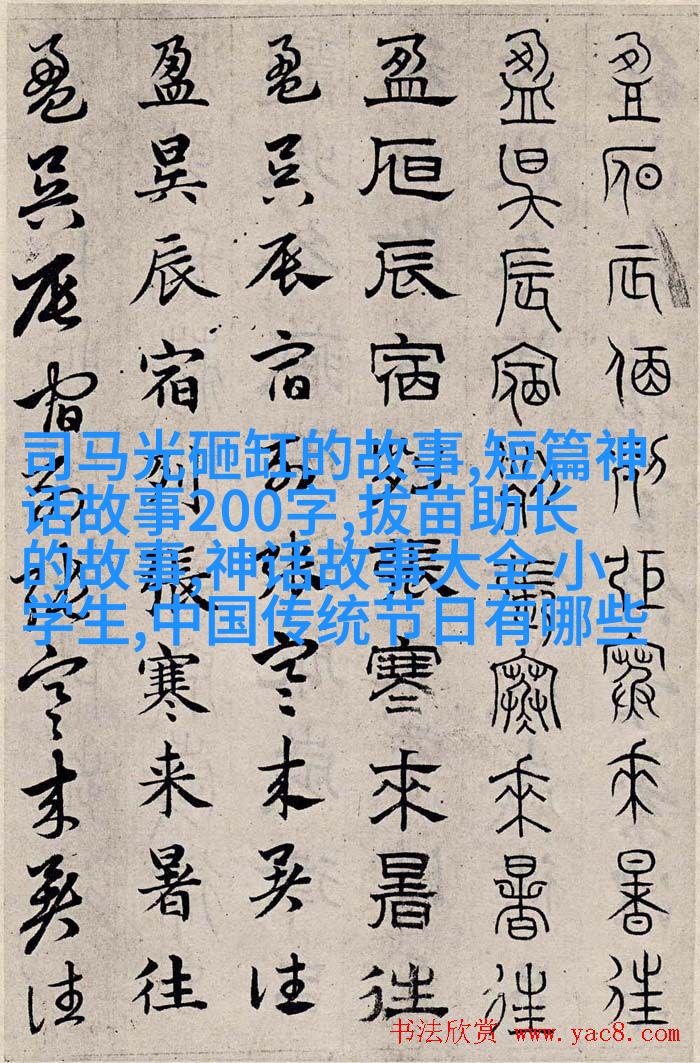 盈昃辰宿列張寒來暑往
盈昃辰宿列張寒來暑往
盈昃辰宿列張寒來暑往
盈昃辰宿列張寒来暑往
盈昃辰宿列張寒来暑往
盈昃辰宿列張寒来暑往
司马光砸缸的故事,短篇神
话故事200字,拔苗助长
的故事,神话故事大全,小
学生,中国传统节日有哪些
书法欣赏 www.yac8.com